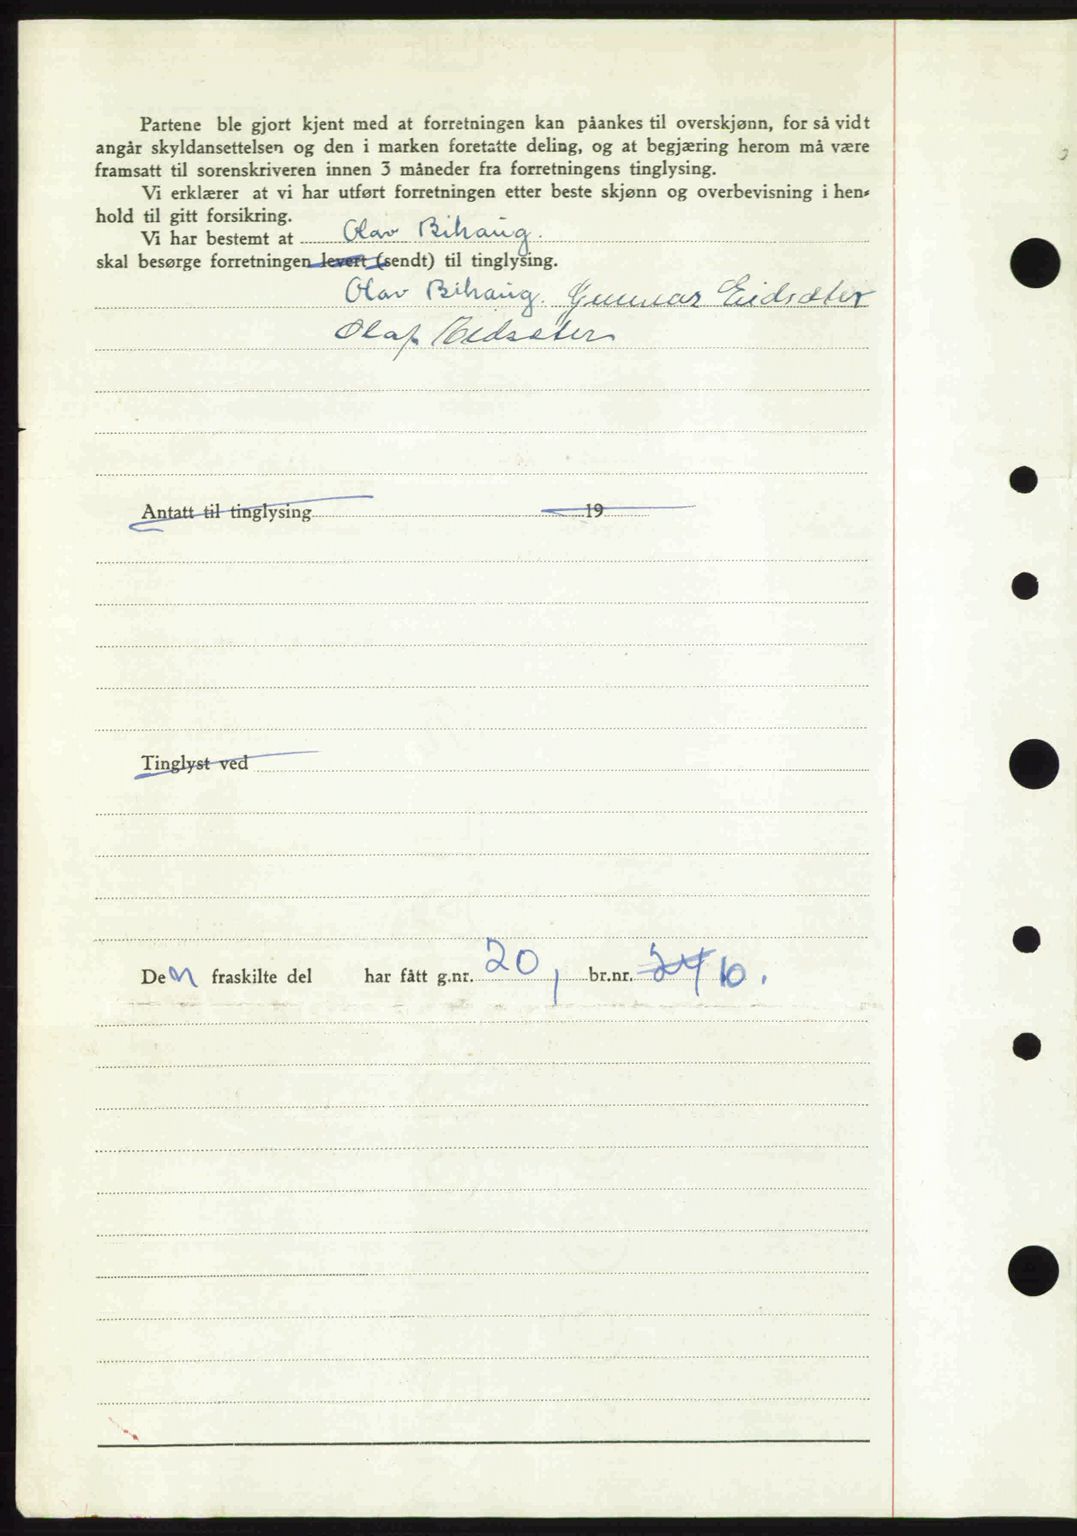 Partene ble gjort kjent med at forretningen kan påankes til overskjønn, for så vidt
angår skyldansettelsen og den i marken foretatte deling, og at begjæring herom må være
framsatt til sorenskriveren innen 3 måneder fra forretningens tinglysing.
Vi erklærer at vi har utført forretningen etter beste skjønn og overbevisning i hen-
hold til gitt forsikring.
Vi har bestemt at Olav Bihaug.
skal besørge forretningen levert (sendt) til tinglysing.
Olav Bihaug. Gunnar Eidsæter
Olaf Eidsæter
Antatt til tinglysing 19
Tinglyst ved
Den fraskilte del har fått g.nr. 20, br.nr. 24 10.